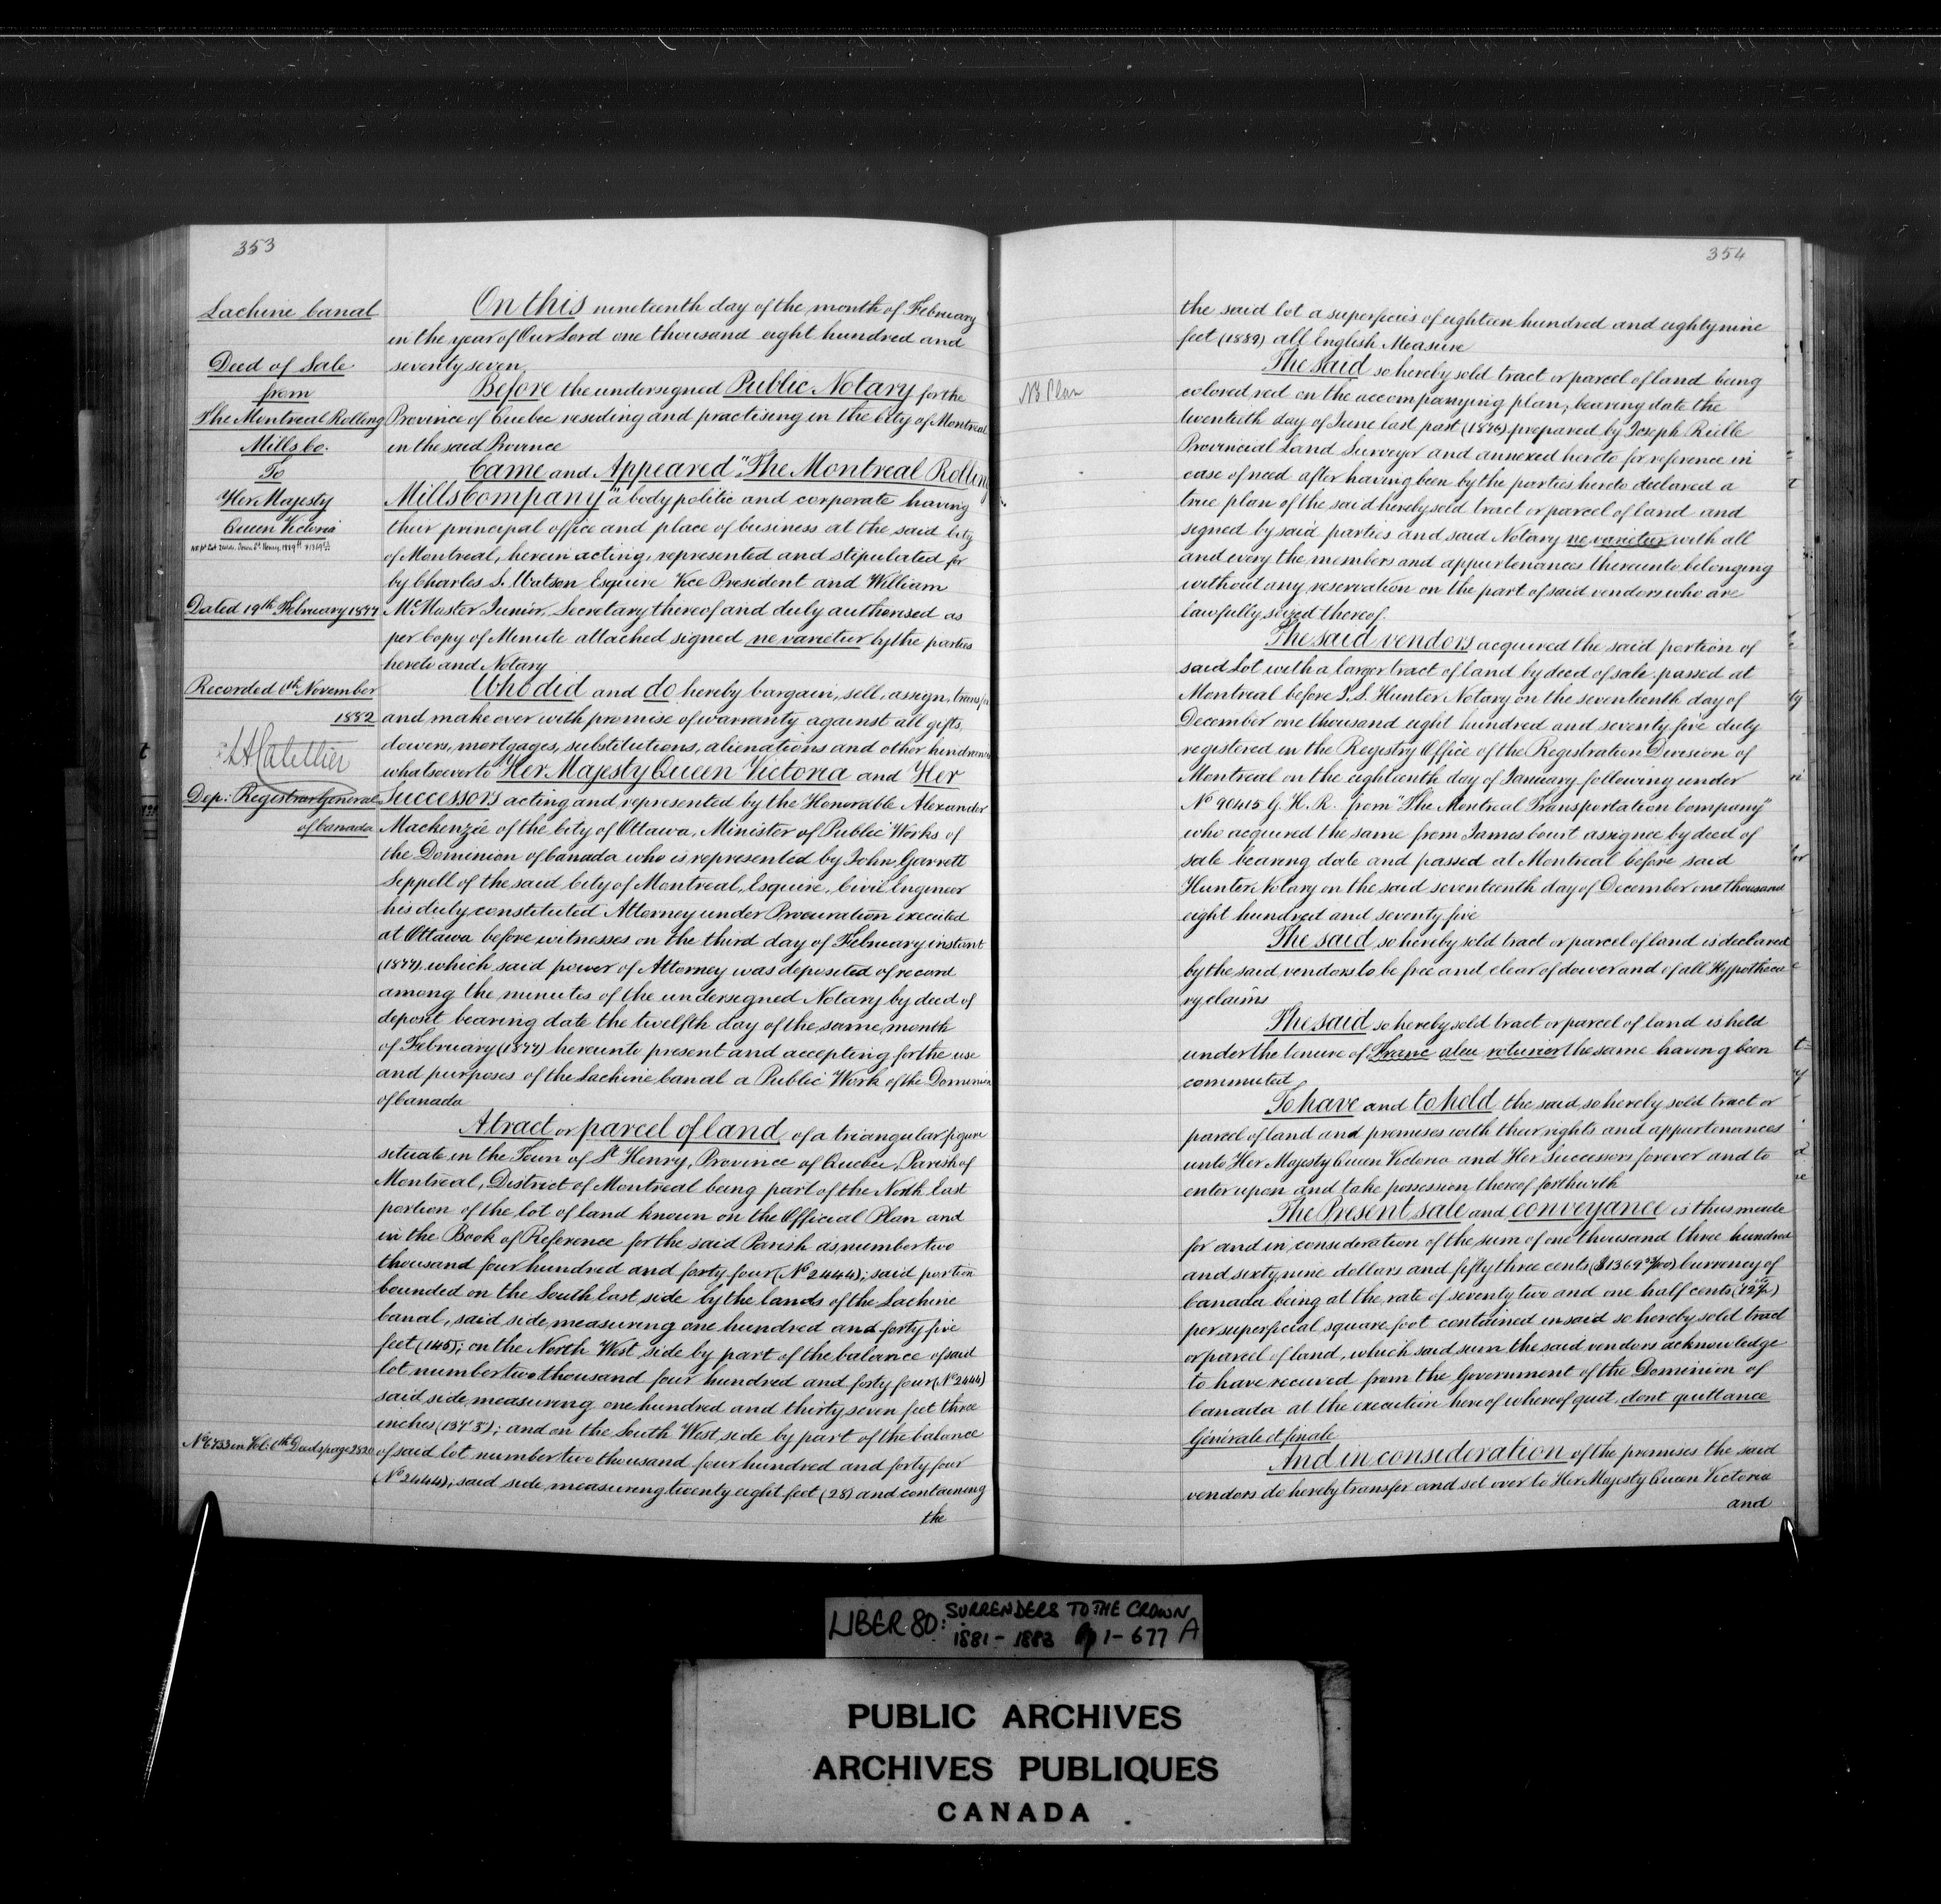 353
Lachine Canal
Deed of Sale
from
The Montreal Rolling
Mills Co.
To
Her Majesty
Queen Victoria
Dated 19th February 1877
Recorded 6th November
1882
Dep: Registrar General
of Canada
No 6733 in Vol: 6th Deeds page 282
On this nineteenth day of the month of February
in the year of Our Lord one thousand eight hundred and
seventy seven.
Before the undersigned Public Notary for the
Province of Quebec residing and practising in the City of Montreal
in the said Province
Came and Appeared "The Montreal Rolling
Mills Company" a body politic and corporate having
their principal office and place of business at the said City
of Montreal, herein acting, represented and stipulated for
by Charles S. Watson Esquire Vice President and William
McMaster Junior, Secretary thereof and duly authorised as
per Copy of Minute attached signed ne varietur by the parties
hereto and Notary
Who did and do hereby bargain, sell, assign, transfer
and make over with promise of warranty against all gifts,
dowers, mortgages, substitutions, alienations and other hindrances
whatsoever to Her Majesty Queen Victoria and Her
Successors acting and represented by the Honorable Alexander
Mackenzie of the City of Ottawa, Minister of Public Works of
the Dominion of Canada who is represented by John Garrett
Seppell of the said City of Montreal, Esquire, Civil Engineer
his duly constituted Attorney under Procuration executed
at Ottawa before witnesses on the third day of February instant
(1877), which said power of Attorney was deposited of record
among the minutes of the undersigned Notary by deed of
deposit bearing date the twelfth day of the same month
of February (1877) hereunto present and accepting for the use
and purposes of the Lachine Canal a Public Work of the Dominion
of Canada
A tract or parcel of land of a triangular figure
situate in the Town of St Henry, Province of Quebec, Parish of
Montreal, District of Montreal being part of the North East
portion of the lot of land known on the Official Plan and
in the Book of Reference for the said Parish as number two
thousand four hundred and forty four (No 2444); said portion
bounded on the South East side by the lands of the Lachine
Canal, said side measuring one hundred and forty five
feet (145); on the North West side by part of the balance of said
lot number two thousand four hundred and forty four (No 2444)
said side measuring one hundred and thirty seven feet three
inches (137' 3"); and on the South West side by part of the balance
of said lot number two thousand four hundred and forty four
(No 2444); said side measuring twenty eight feet (28) and containing
the
354
NB Plan
the said lot a superficies of eighteen hundred and eighty nine
feet (1889) all English Measure
The said so hereby sold tract or parcel of land being
colored red on the accompanying plan, bearing date the
twentieth day of June last past (1876) prepared by Joseph Rielle
Provincial Land Surveyor and annexed hereto for reference in
case of need after having been by the parties hereto declared a
true plan of the said hereby sold tract or parcel of land and
signed by said parties and said Notary ne varietur with all
and every the members and appurtenances thereunto belonging
without any reservation on the part of said vendors who are
lawfully seized thereof.
The said vendors acquired the said portion of
said Lot with a larger tract of land by deed of sale passed at
Montreal before J. S. Hunter Notary on the seventeenth day of
December one thousand eight hundred and seventy five duly
registered in the Registry Office of the Registration Division of
Montreal on the eighteenth day of January following under
No 90415 G. H. R. from "The Montreal Transportation Company"
who acquired the same from James Court assignee by deed of
sale bearing date and passed at Montreal before said
Hunter Notary on the said seventeenth day of December one thousand
eight hundred and seventy five
The said so hereby sold tract or parcel of land is declared
by the said vendors to be free and clear of dower and of all Hypotheca
ry claims
The said so hereby sold tract or parcel of land is held
under the tenure of Franc aleu roturier the same having been
commuted
To have and to hold the said so hereby sold tract or
parcel of land and premises with their rights and appurtenances
unto Her Majesty Queen Victoria and Her Successors forever and to
enter upon and take possession thereof forthwith
The Present sale and conveyance is thus made
for and in consideration of the sum of one thousand three hundred
and sixty nine dollars and fifty three cents ($1369 53/100) Currency of
Canada being at the rate of seventy two and one half cents (72 1/2 cts)
per superficial square foot contained in said so hereby sold tract
or parcel of land, which said sum the said vendors acknowledge
to have received from the Government of the Dominion of
Canada at the execution hereof whereof quit, dont quittance
Générale et finale
And in consideration of the premises the said
vendors do hereby transfer and set over to Her Majesty Queen Victoria
and
LIBER 80: SURRENDERS TO THE CROWN
1881 - 1883 pp 1 - 677 A
PUBLIC ARCHIVES
ARCHIVES PUBLIQUES
CANADA